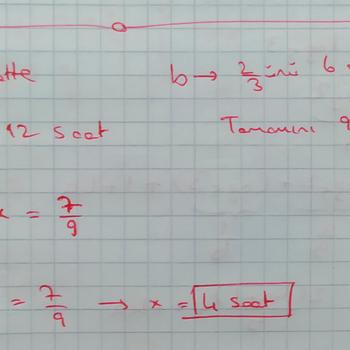 atte b → 2/3 ini 6
12 saat Tamamını 9
x = 7/9
= 7/9 → x = 4 saat